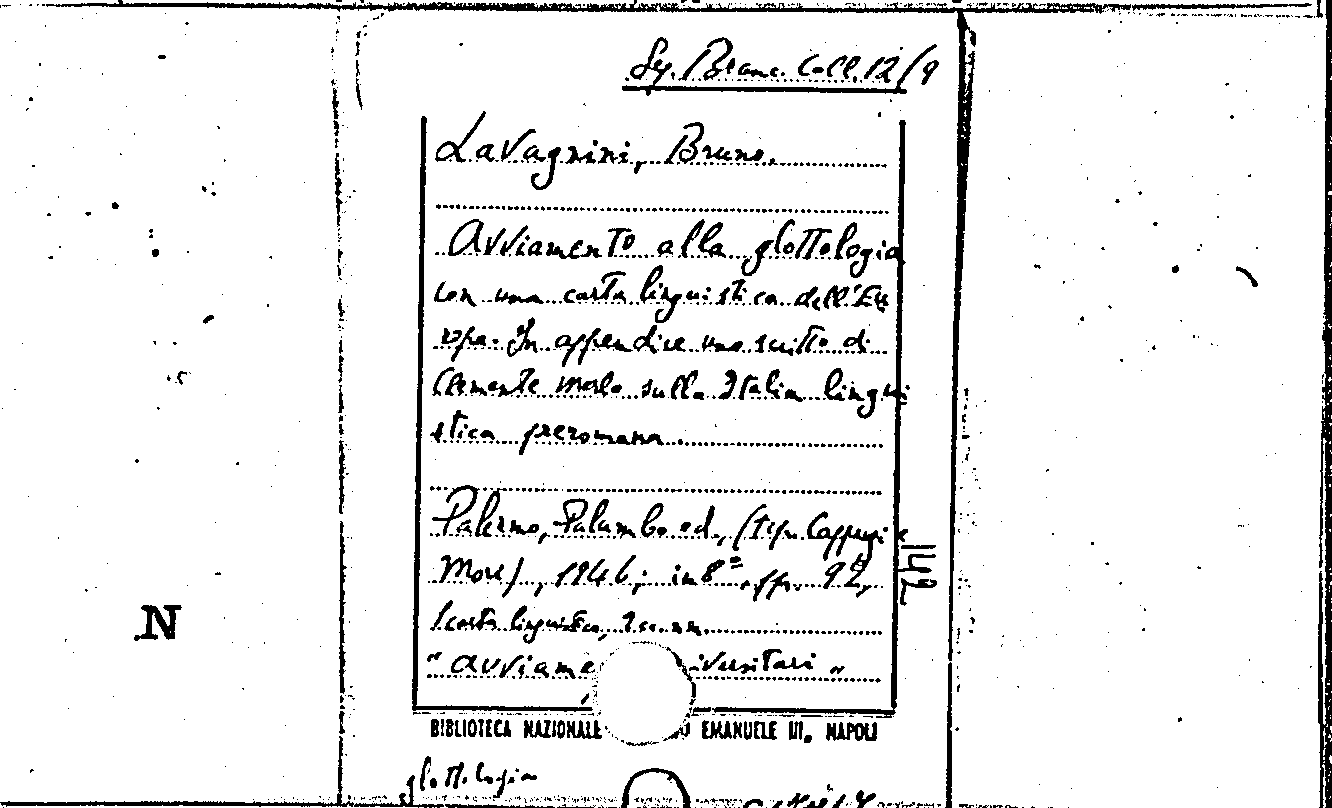 Sez. Branc. Coll. 12/9
Lavagnini, Bruno.
Avviamento alla glottologia
con una carta linguistica dell'Eu
ropa. In appendice uno scritto di
Clemente Merlo sulla Italia lingui
stica preromana.
Palermo, Palumbo ed., (tip. Cappugi e
Mori), 1946; in 8º, pp. 92,
1 carta linguistica, 2 cc. nn.
"avviame iversitari"
1142
N
BIBLIOTECA NAZIONALE O EMANUELE III, NAPOLI
glottologia